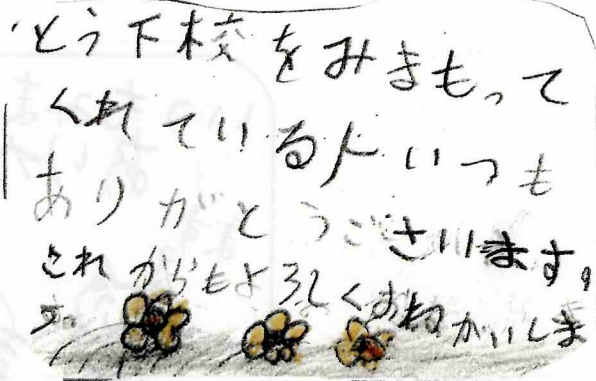 とう下校をみまもって
くれている人いつも
ありがとうございます。
これからもよろしくおねがいしま
す。